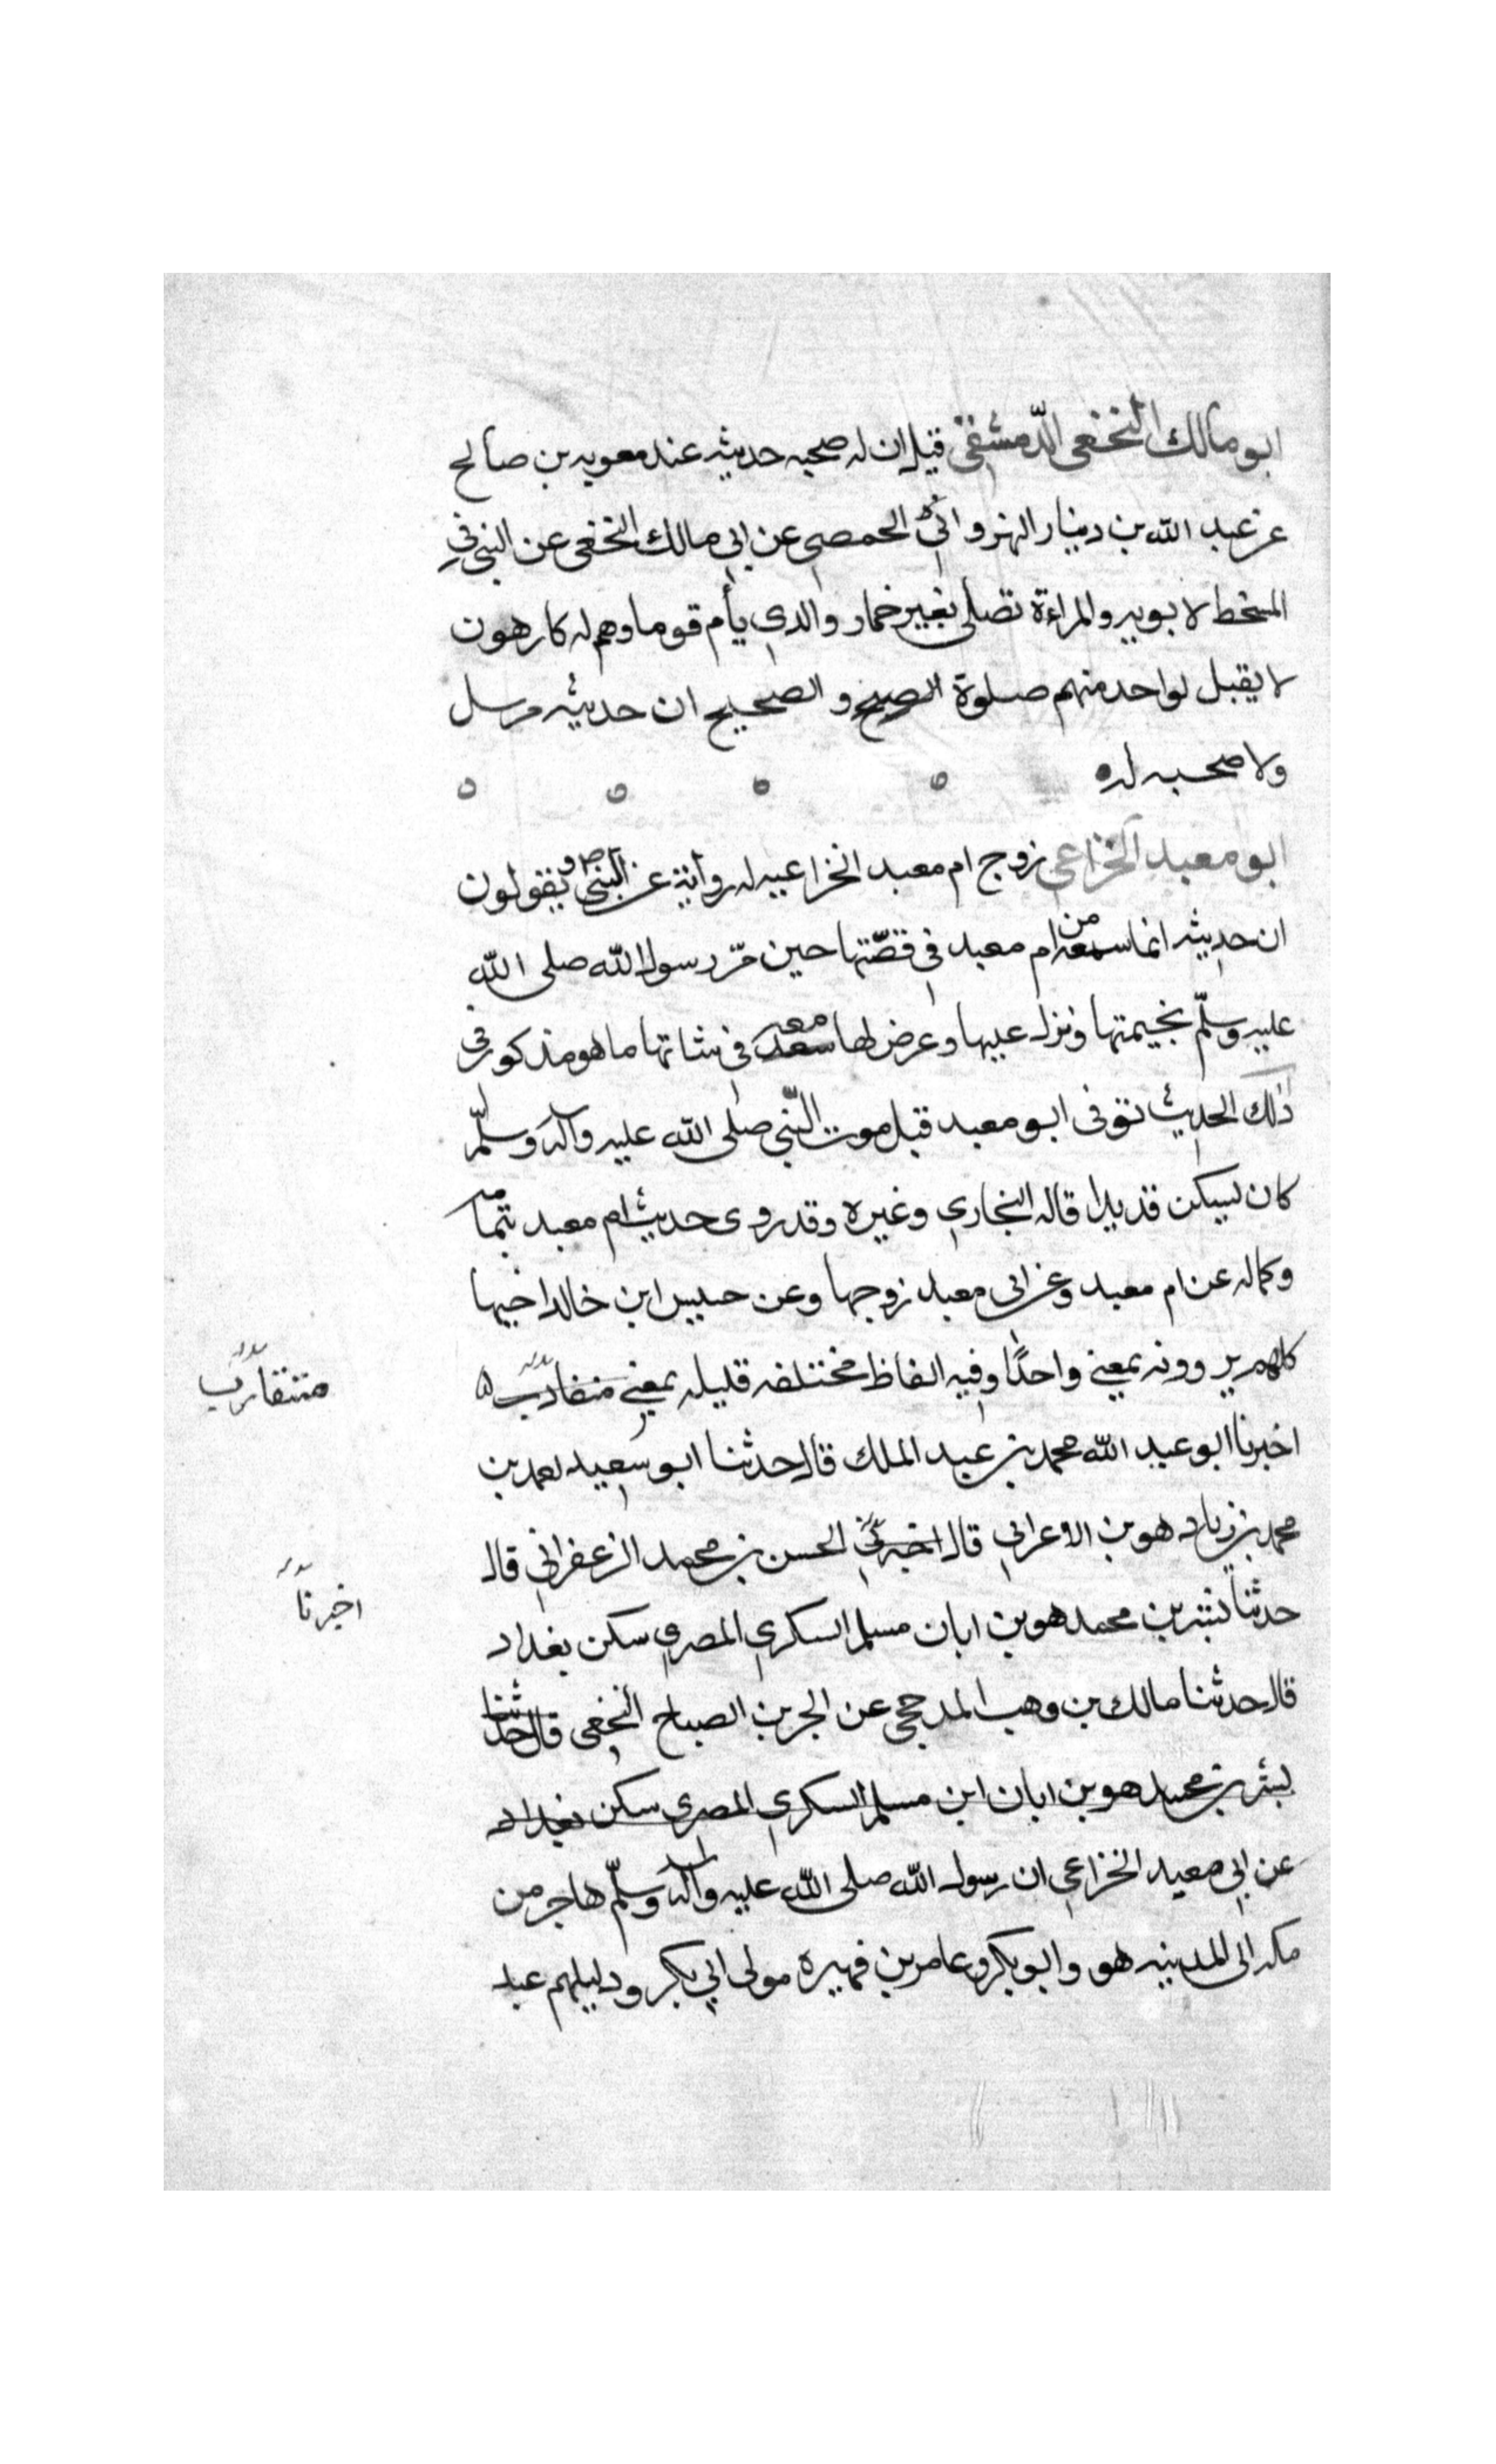 ابو مالك النخعى الدّمشقى قيل ان له صحبه حديثه عند معويه بن صالح
عن عبد الله بن دينار النهروانى الحمصي عن ابي مالك النخعى عن النبى في
المسخط لابويه والمراءة تصلى بغير خمار والدي يأم قوما وهم له كارهون
لا يقبل لواحد منهم صلوة الصبح و الصحيح ان حديثه مرسل
ولا صحبه له
ابو معبد الخزاعي زوج ام معبد الخزاعيه له رواية عن النبى ص و يقولون
ان حديثه انما سمعه من ام معبد فى قصّتها حين مّر رسول الله صلى الله
عليه وسلّم بخيمتها ونزل عليها وعرض لها سعد معه فى شاتها ما هو مذكور فى
ذلك الحديث توفى ابو معبد قبل موت النّبي صلى الله عليه وآله وسلّم
كان يسكن قديدا قاله البخاري وغيره وقد روى حديث ام معبد بتمامه
وكماله عن ام معبد وعن ابى معبد زوجها وعن حبيس ابن خالد اخيها
كلهم يروونه بمعني واحدًا وفيه الفاظ مختلفه قليله بمعني متقارب
متقارب
اخبرنا ابو عبد الله محمد بن عبد الملك قال حدثنا ابو سعيد احمد بن
محمد بن زياد هو بن الاعرابي قال اخبرني الحسن بن محمد الزعفراني قال
اخبرنا
حدثنا بشر بن محمد هو بن ابان مسلم السكري المصري سكن بغداد
قال حدثنا مالك بن وهب المدحجى عن الحر بن الصباح النخعى قال حدثنا
بشر بن محمد هو بن ابان ابن مسلم السكري المصرى سكن بغداد
عن ابي معبد الخزاعي ان رسول الله صلى الله عليه وآله وسلّم هاجر من
مكه الى المدينه هو وابو بكر وعامر بن فهيرة مولى ابي بكر ودليلهم عبد